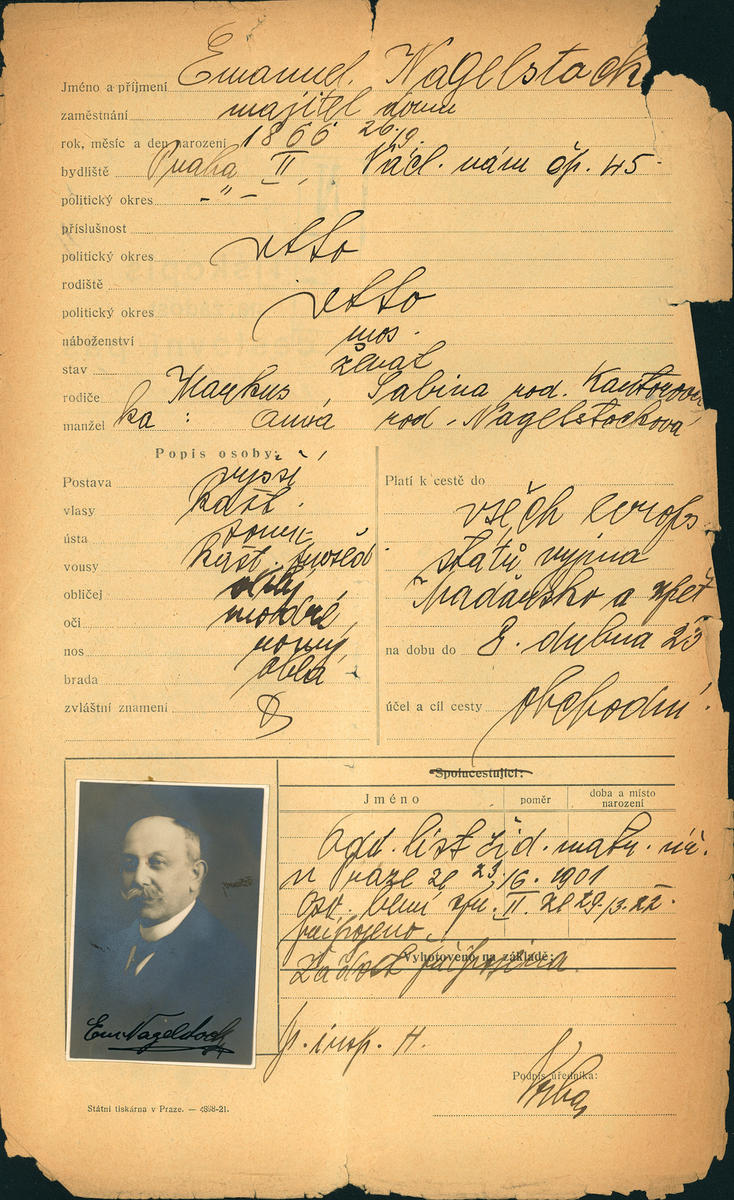 Jméno a příjmení Emanuel Nagelstock
zaměstnání majitel domu
rok, měsíc a den narození 1866 26/9.
bydliště Praha II Václ. nám čp. 45
politický okres - " -
příslušnost
politický okres detto
rodiště
politický okres detto
náboženství mos.
stav ženat
rodiče Markus Sabina rod. Kantorová
manžel ka: Anna rod. Nagelstocková
Popis osoby:
Postava vyšší
vlasy kašt.
ústa
vousy kašt. prošed
obličej
oči modré
nos rovný
brada oblá
zvláštní znamení
Platí k cestě do
všech evrops
států vyjma
Maďarsko a zpět
na dobu do 8. dubna 23
účel a cíl cesty obchodní
Spolucestující:
Jméno poměr doba a místo narození
Odd. list žid. matr. úř.
v Praze ze 23/6. 1901
II. ze 29/3. 22.
připojeno.
Vyhotoveno na základě:
Žádost připojena
p. insp. H.
Podpis úředníka:
Em Nagelstock
Státní tiskárna v Praze. — 4898-21.